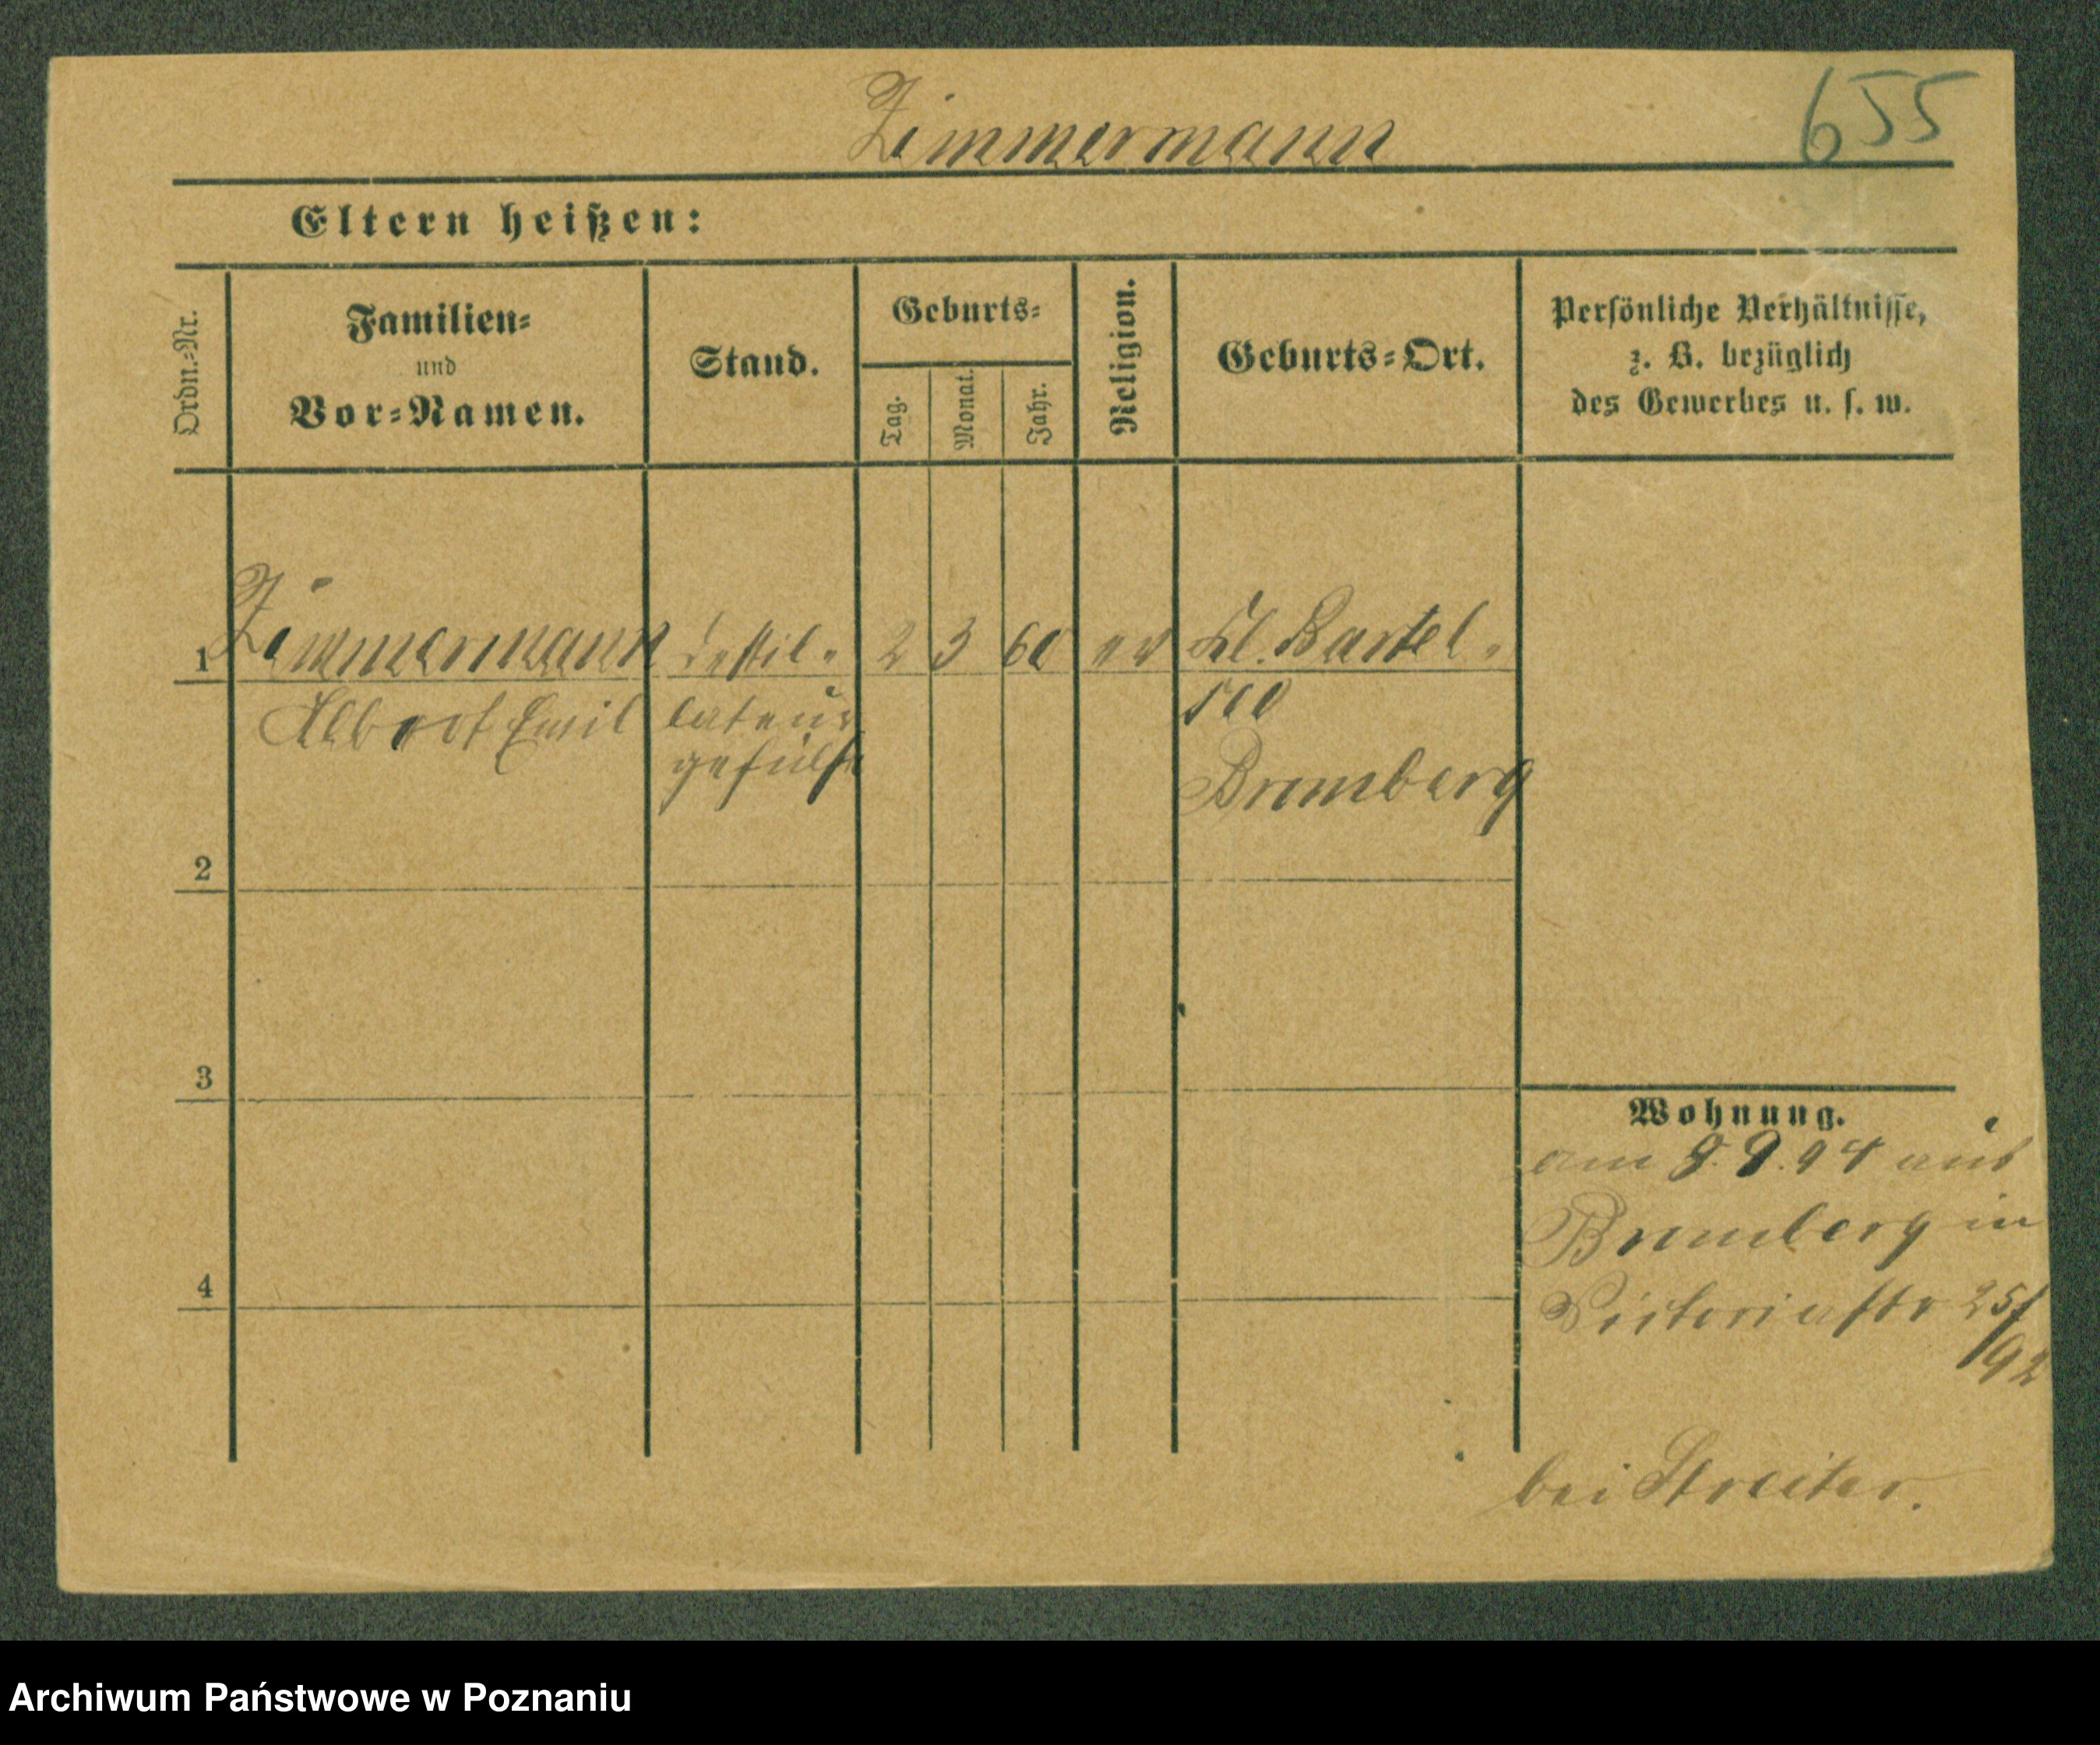 Zimmermann
655
Eltern heißen:
Ordn.-Nr.
Familien-
und
Vor-Namen.
Stand.
Geburts-
Tag.
Monat.
Jahr.
Religion.
Geburts-Ort.
Persönliche Verhältnisse,
z. B. bezüglich
des Gewerbes u. s. w.
1 Zimmermann Destil- 2 3 60 ev Kl. Bartel-
Albert Emil lateur
gehülfe
Bromberg
2
3
4
Wohnung.
am 8.9.94 aus
Bromberg in
Victoriastr 25/
92
bei Streiter.
Archiwum Państwowe w Poznaniu